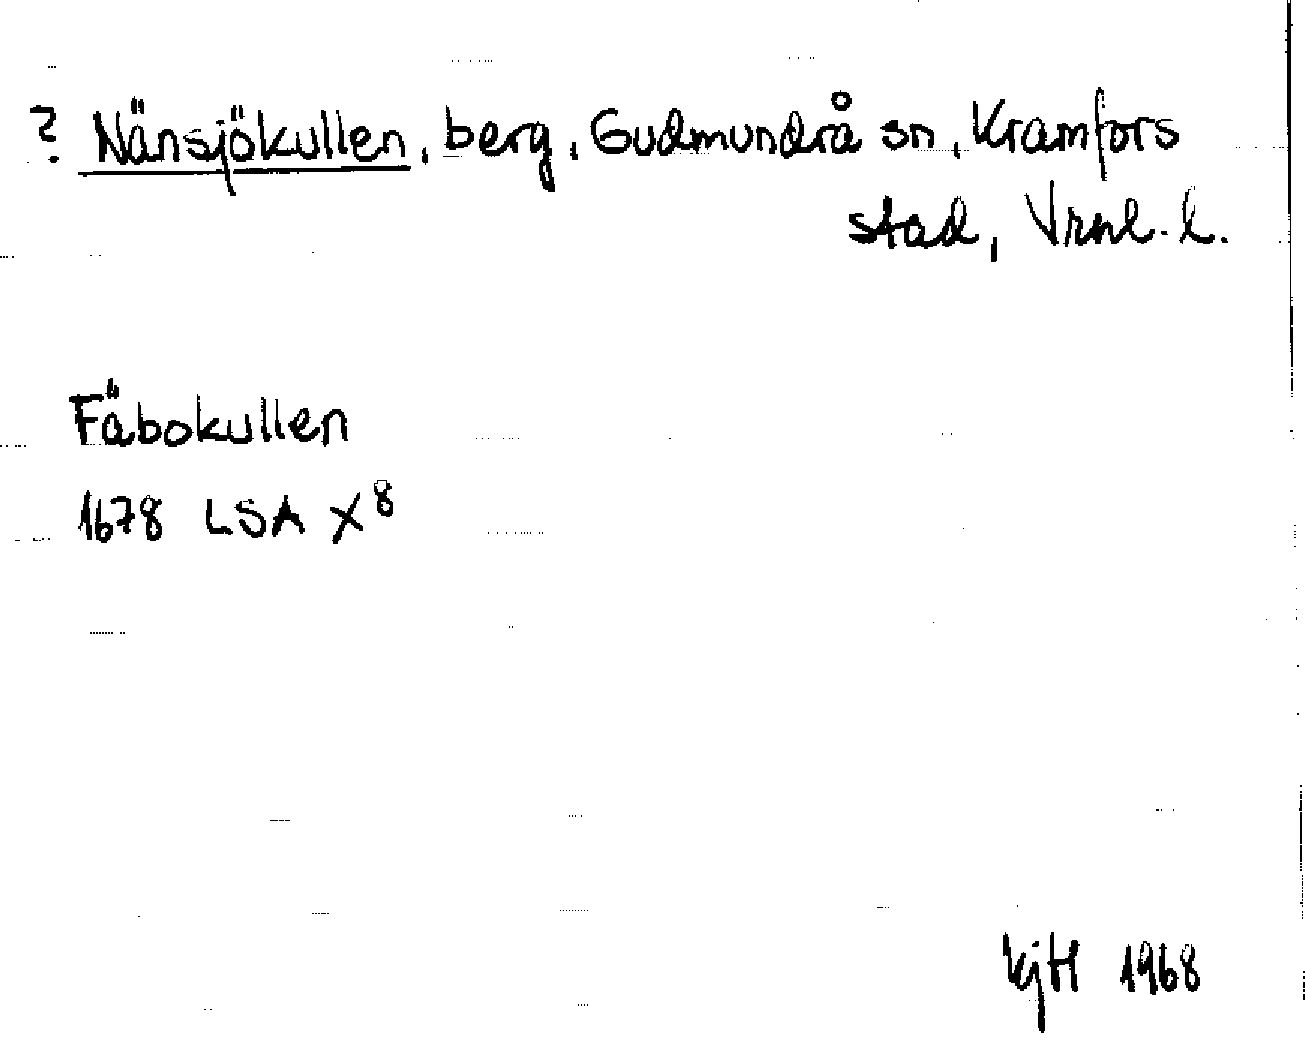 ? Nänsjökullen, berg, Gudmundrå sn, Kramfors
stad, Vrnl. l.
Fäbokullen
1678 LSA X⁸
KjH 1968